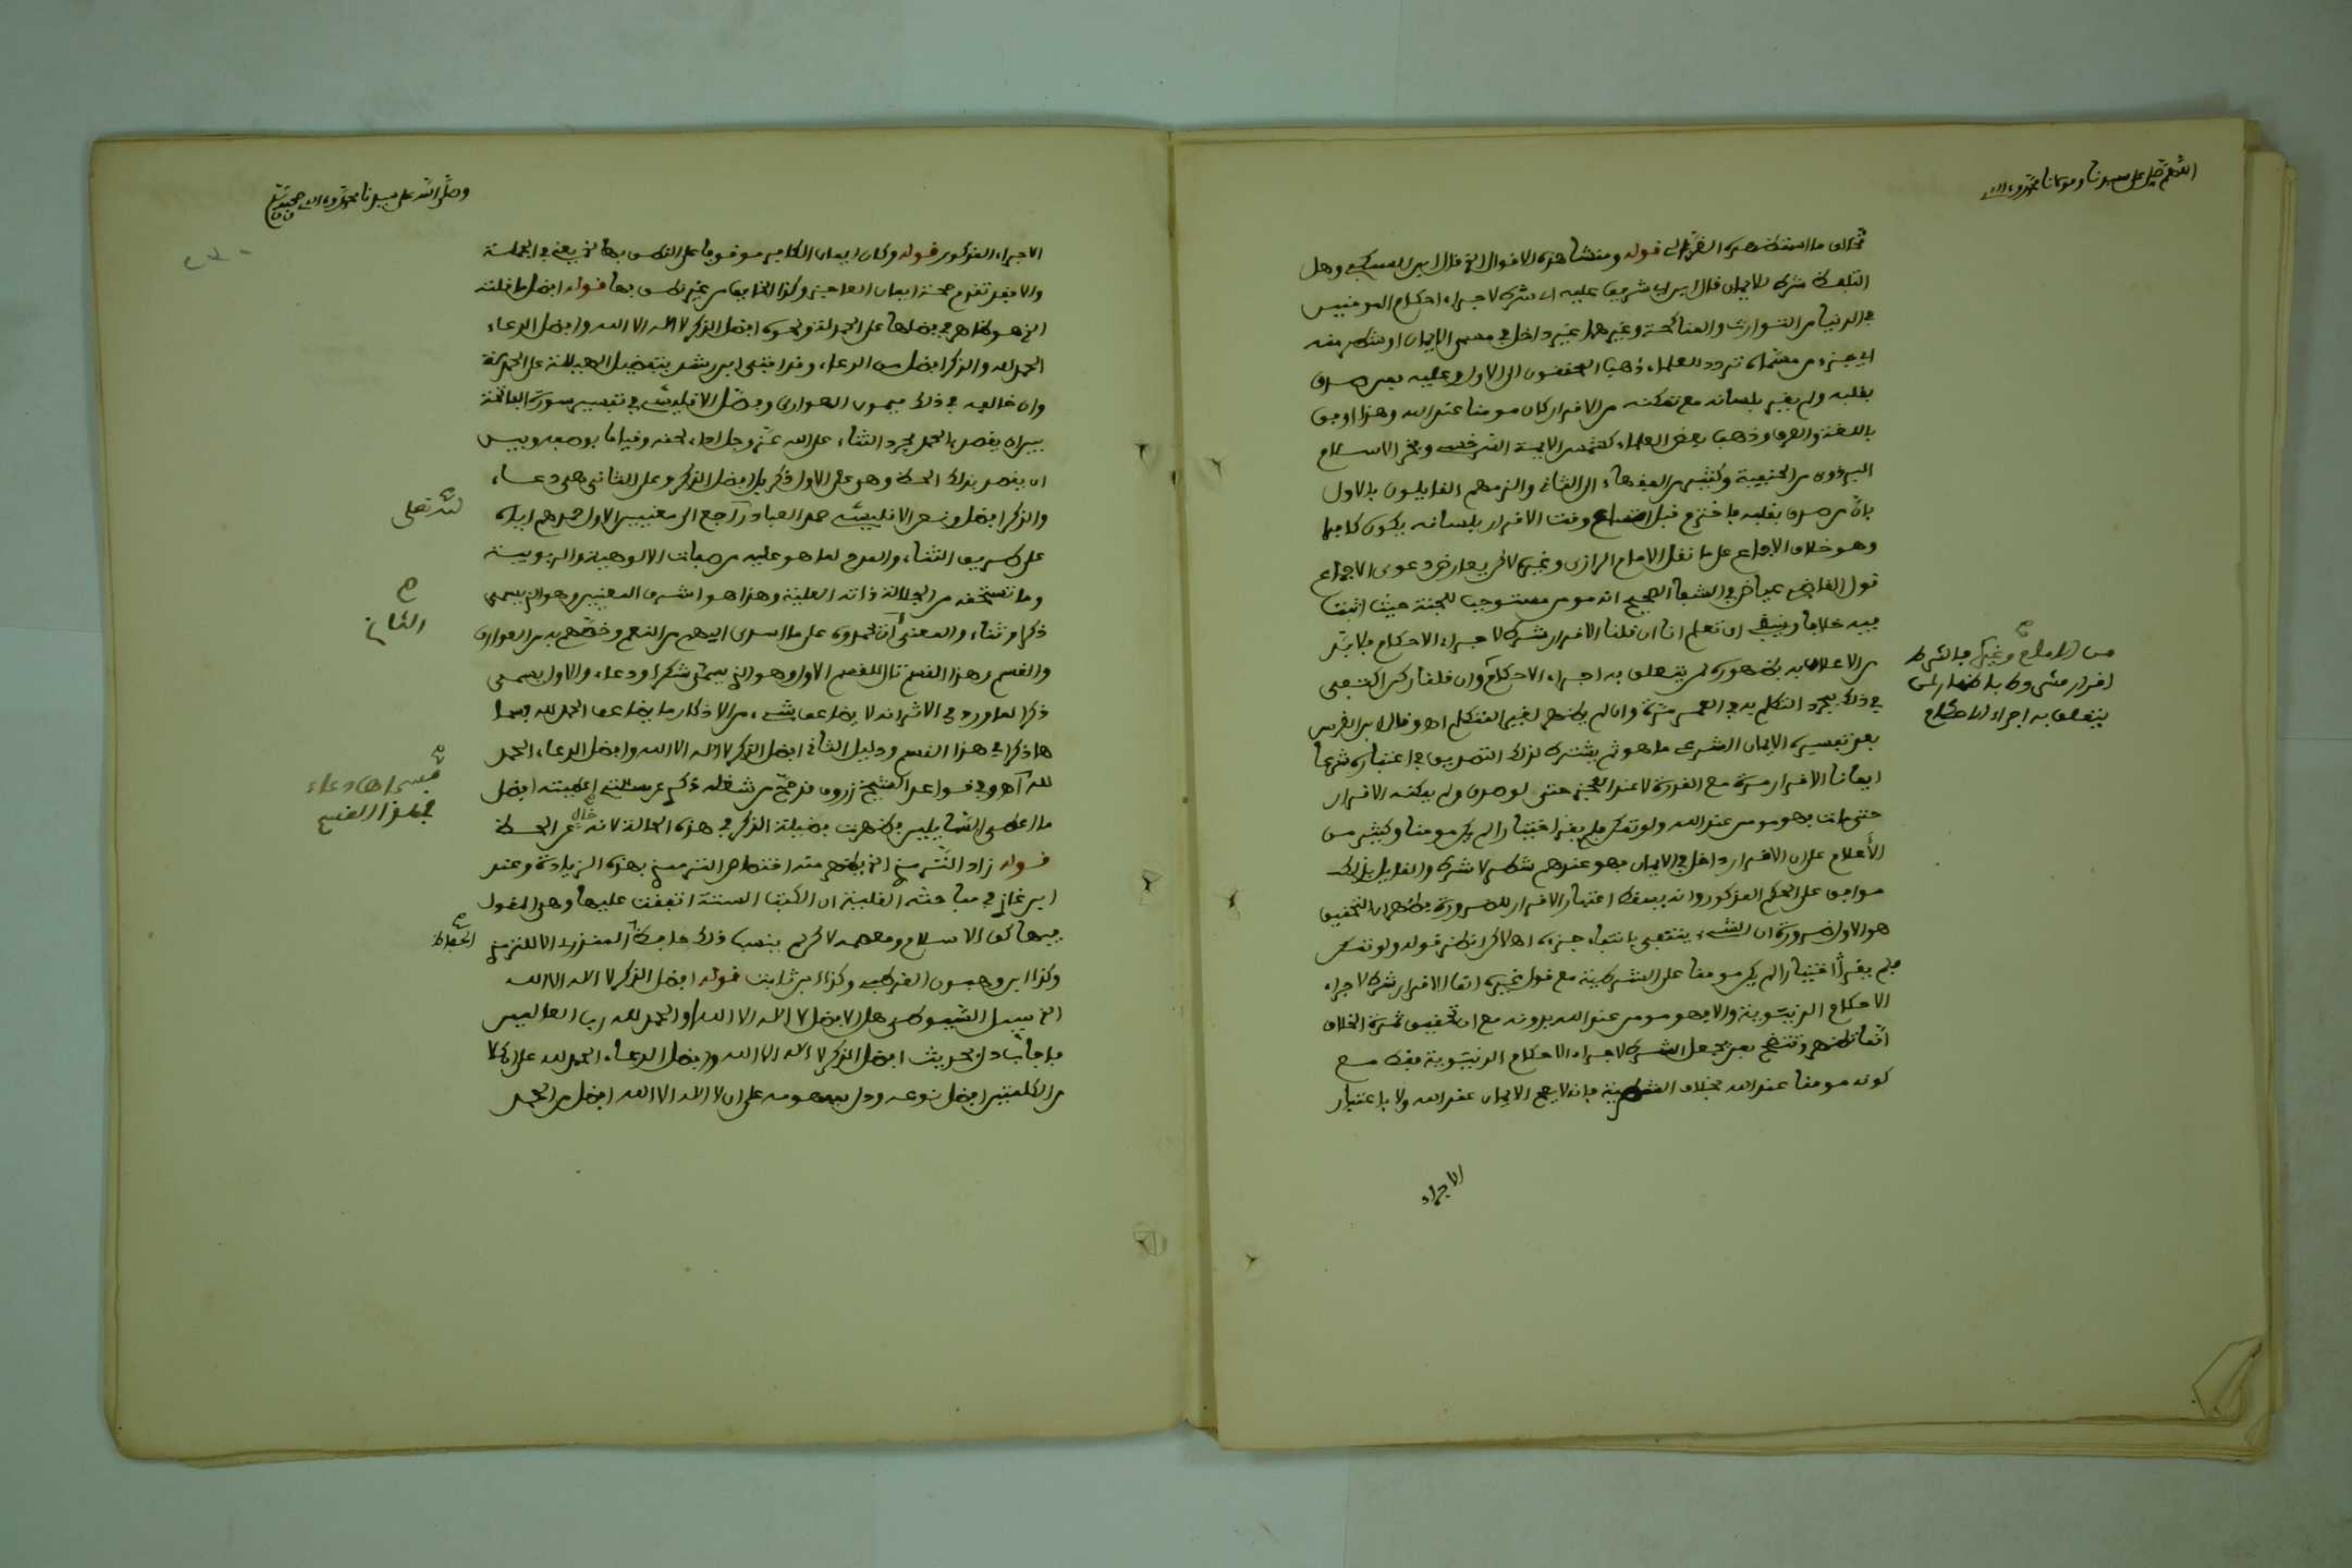 اللهم صل على سيدنا ومولانا محمد وءاله
بخلاف ما استظهره الفترالي قوله ومنشا هذه الاقوال الخ قال ابن السبكي وهل
التلفظ شرط للايمان قال ابن ابي شريف عليه اي شرط لاجراء احكام المومنين
في الدنيا من التوارث والمناكحة وغيرهما غير داخل في مسمى الايمان او شطر منه
اي جزء من مسماه تردد العلماء ذهب المحققون الى الاول وعليه فمن صدق
بقلبه ولم يقر بلسانه مع تمكنه من الاقرار كان مومنا عند الله وهذا اوفق
باللغة والعرف وذهب بعض العلماء كشمس الايمة السرخسي وفخر الاسلام
البزدوي من الحنفية وكثير من الفقهاء الى الثاني والزمهم القايلون بالاول
بان من صدق بقلبه فاخترم قبل اتساع وقت الاقرار بلسانه يكون كافرا
وهو خلاف الاجماع على ما نقل الامام الرازي وغيره لاكن يعارض دعوى الاجماع
قول القاضي عياض في الشفا الصحيح انه مومن مستوجب للجنة حيث اثبت
فيه خلافا وينبغي ان تعلم انا ان قلنا الاقرار شرط لاجراء الاحكام فلا بد
من الاعلان به بظهوره لمن يتعلق به اجراء الاحكام وان قلنا ركن اكتفي
في ذلك بمجرد التكلم به في العمر مرة وان لم يظهر لغير المتكلم اه وقال ابن الغرس
بعد تفسيره الايمان الشرعي ما هو ثم يشترط لذلك التصديق في اعتباره شرعا
ايمانا الاقرار مرة مع القدرة لا عند العجز حتى لو صدق ولم يمكنه الاقرار
حتى مات فهو مومن عند الله ولو تمكن فلم يقر اختيارا لم يكن مومنا وكثير من
الأعلام على ان الاقرار داخل في الايمان فهو عندهم شطر لا شرط والقايل بذلك
موافق على الحكم المذكور وانه يسقط اعتبار الاقرار للضرورة فظهر ان التحقيق
هو الاول ضرورة ان الشيء ينتفي بانتفاء جزءه اه لاكن انظر قوله ولو تمكن
فلم يقر اختيارا لم يكن مومنا على الشرطية مع قول غيره اتما الاقرار شرط لاجراء
الاحكام الدنيوية والا فهو مومن عند الله بدونه مع ان تحقيق ثمرة الخلاف
انما تظهر وتنتج بعد بجعل الشرط لاجراء الاحكام الدنيوية فقط مع
كونه مومنا عند الله بخلاف الشطرية فانه لا يصح الايمان عند الله ولا باعتبار
من الامام وغيره فالشرط
اقرار مشروط باظهار لمن
يتعلق به اجراء الاحكام
الاجراء
وصلى الله على سيدنا محمد وءاله وصحبه وسلم
الاجراء المذكور قوله وكان ايمان الكافر موقوفا على النطق بها الخ يعني في الجملة
والا فقد تقدم صحة ايمان العاجز وكذا الخايف من غير نطق بها قوله افضل ما قلته
الخ هو ظاهر في فضلها على الحمدلة ونحوه افضل الذكر لا اله الا الله وافضل الدعاء
الحمد لله والذكر افضل من الدعاء وقد افتى ابن رشد بتفضيل الهيللة على الحمدلة
وان خالفه في ذلك ميمون الهواري وفصل الاقليشي في تفسير سورة الفاتحة
بين ان يقصد بالحمد مجرد الثناء على الله عز وجل اداء لحقه وقياما بوصفه وبين
ان يقصد بذلك الحظ وهو على الاول ذكر بل افضل الذكر وعلى الثاني هو دعاء
والذكر افضل ونص الاقليشي حمد العباد راجع الى معنيين الاول حمدهم اياه
على طريق الثناء والمدح لما هو عليه من صفات الالوهية والربوبية
وما تستحقه من الجلالة ذاته العلية وهذا هو اشرف المعنيين وهو الذي يسمى
ذكرا وثناء والمعنى ان يحمدوه على ما اسدى اليهم من النعم وخصهم به من العوارف
والقسم وهذا القسم تال للقسم الاول وهو الذي يسمى شكرا ودعاء والاول يسمى
ذكرا لما ورد في الاثر انه لا يضاعف شيء من الاذكار ما يضاعف الحمد لله
هاذكر في هذا القسم ودليل الثاني افضل الذكر لا اله الا الله وافضل الدعاء الحمد
لله اه وفي قواعد الشيخ زروق قد صح من شغله ذكري عن مسئلتي اعطيته افضل
ما اعطي السايلين فظهرت فضيلة الذكر في هذه الحالة لانه خال عن الحظ
قوله زاد الترمذي الخ يظهر منه اختصاص الترمذي بهذه الزيادة وعند
ابن غازي في مباحثه القلبية ان الكتب الستة اتفقت عليها وهي المقول
فيها كف الاسلام ومعصمه لاكن لم ينسب ذلك حافظ المنذري الا للترمذي
وكذا ابن وهبون القرطبي وكذا ابن ثابت قوله افضل الذكر لا اله الا الله
الخ سيل الشيوطي هل الافضل لا اله الا الله او الحمد لله رب العالمين
فاجاب دل الحديث افضل الذكر لا اله الا الله وافضل الدعاء الحمد لله على ان كلا
من الكلمتين افضل نوعه ودل بمفهومه على ان لا اله الا الله افضل من الحمد
لله تعلى
الثاني
الحفاظ